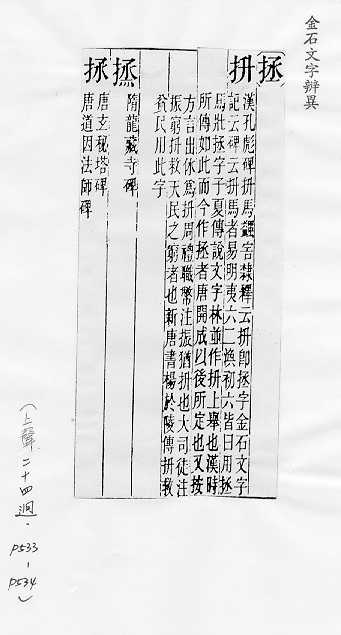 金石文字辨異
〔拯〕
拼
漢孔彪碑拼馬蠲害隸釋云拼卽拯字金石文字
記云碑云拼馬者易明夷六二渙初六皆曰用拯
馬壯拯字子夏傳說文字林並作拼上舉也漢時
所傳如此而今作拯者唐開成以後所定也又按
方言出休爲拼周禮職幣注振猶拼也大司徒注
振窮拼救天民之窮者也新唐書楊於陵傳拼救
貧民用此字
隋龍藏寺碑
唐玄秘塔碑
唐道因法師碑
(上聲二十四迥.
P533-
P534)